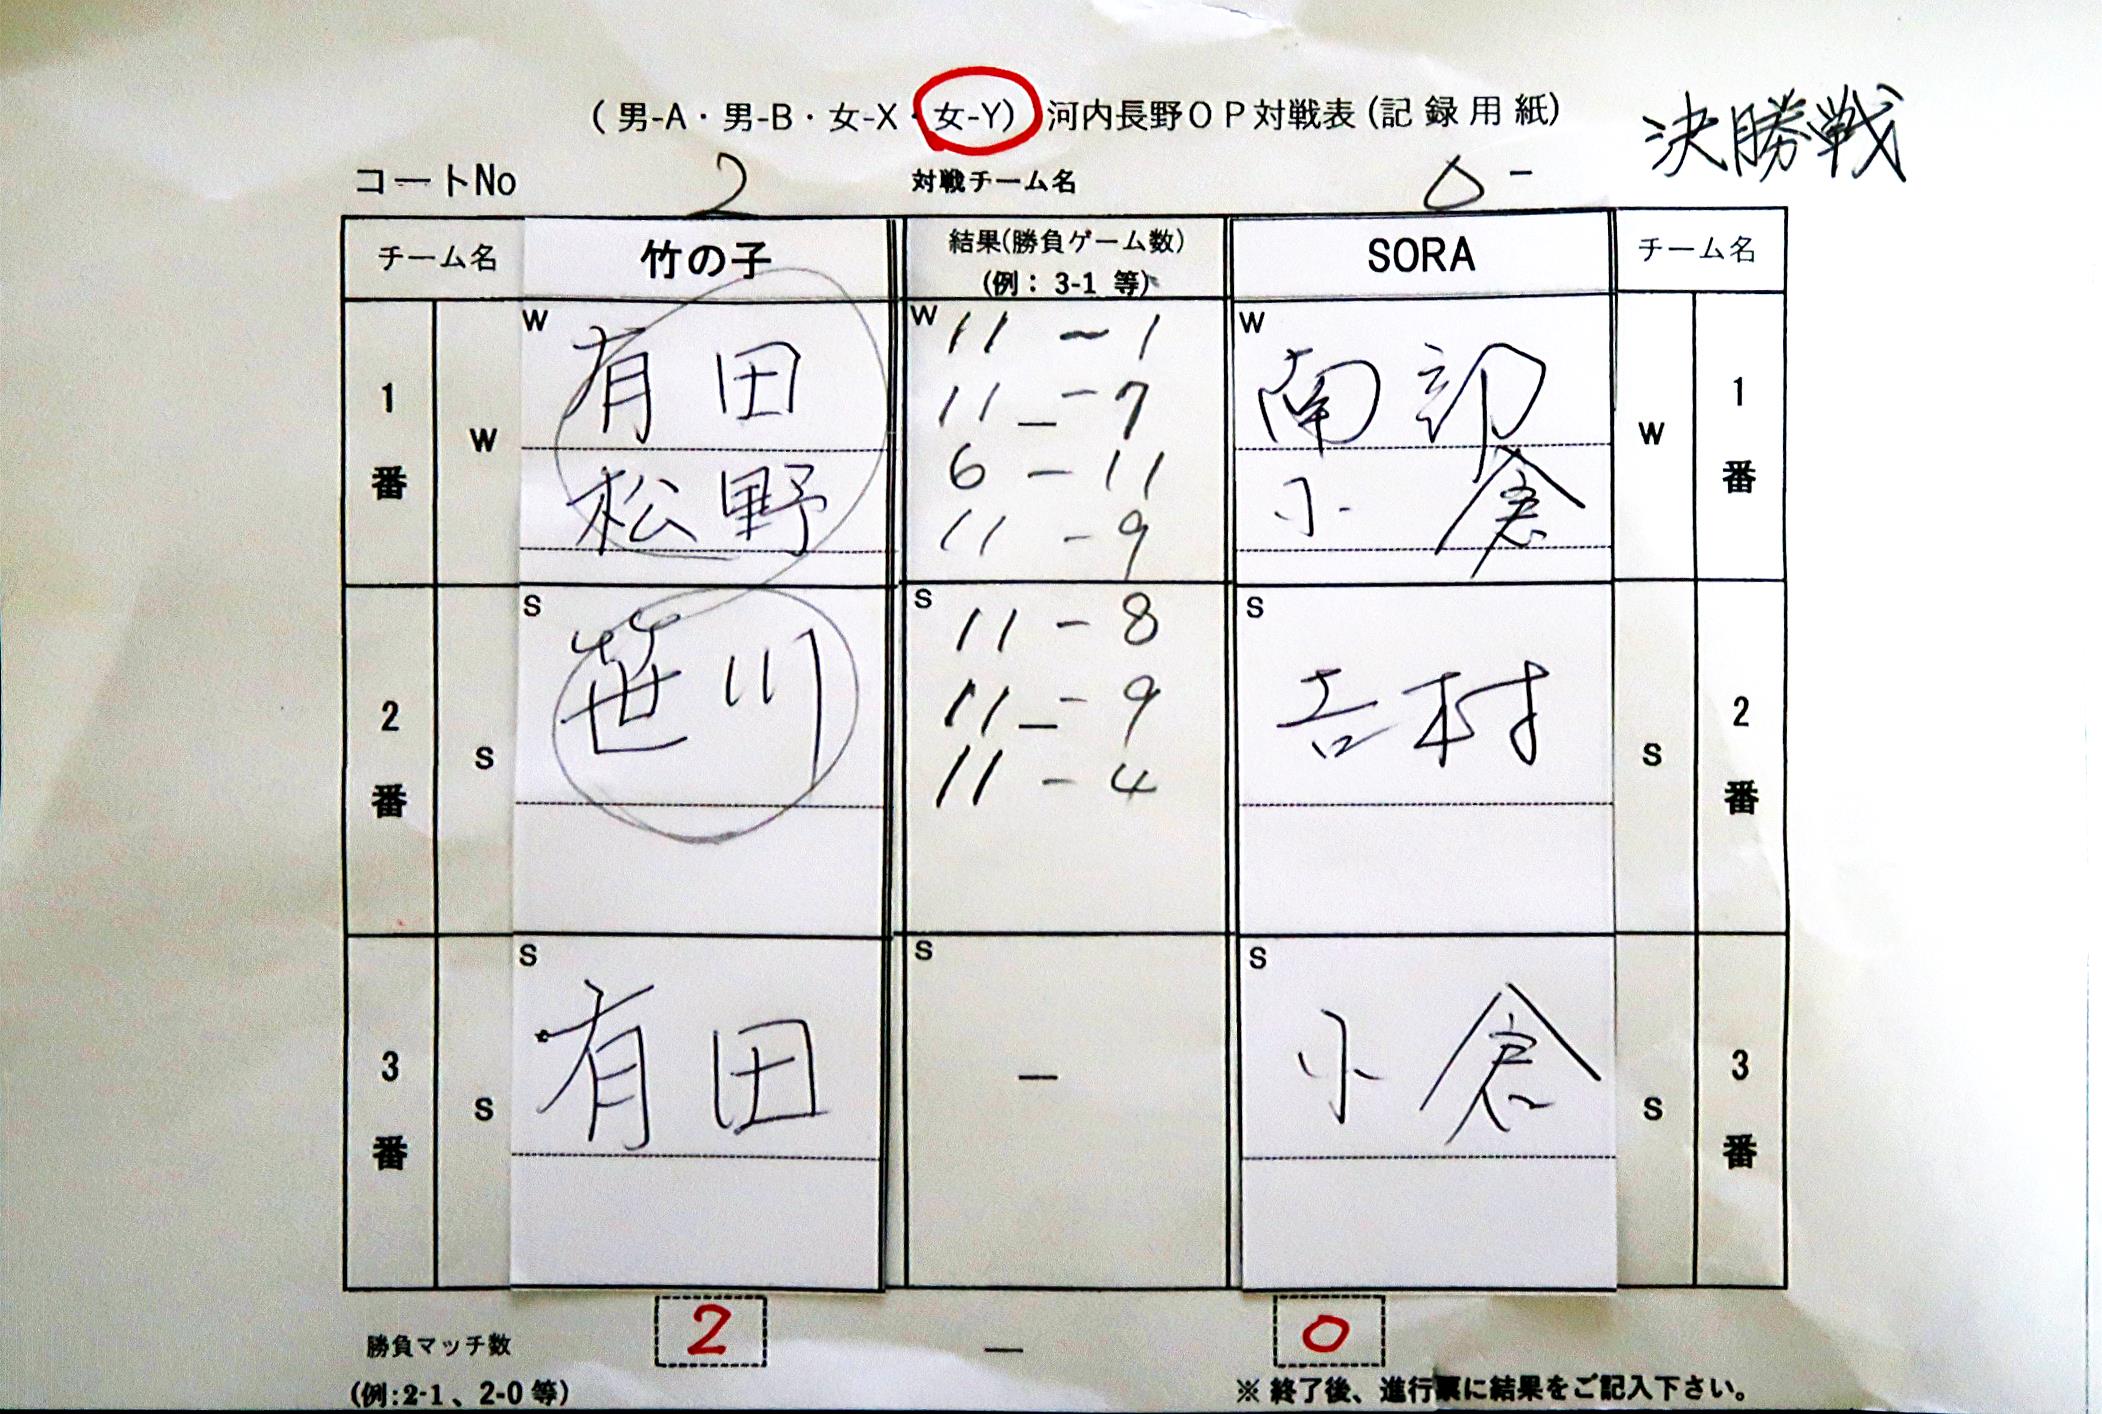 決勝戦
(男-A・男-B・女-X・女-Y) 河内長野OP対戦表(記録用紙)
コートNo 2 対戦チーム名
チーム名 竹の子 結果(勝負ゲーム数) SORA チーム名
(例： 3-1 等)
W W W
有田 11 - 1 南部
1番 W 11 - 7 W 1番
松野 6 - 11 小倉
11 - 9
S S S
11 - 8
2番 S 笹川 11 - 9 吉村 S 2番
11 - 4
S S S
3番 S 有田 - 小倉 S 3番
勝負マッチ数 2 - 0
(例:2-1、2-0等) ※ 終了後、進行票に結果をご記入下さい。